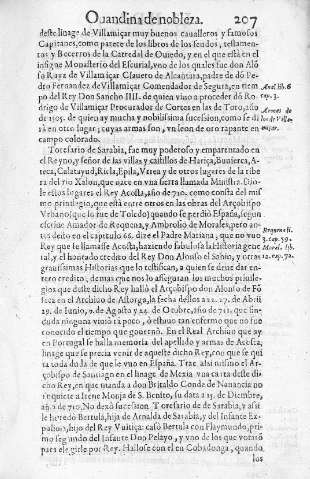 Quandina de nobleza. 207
deste linage de Villamiçar muy buenos caualleros y famosos
Capitanes, como parece de los libros de los feudos, testamen-
tos y Becerros de la Catredal de Ouiedo, y en el que està en el
insigne Monasterio del Escurial, vno de los quales fue don Alõ
so Raya de Villamiçar Clauero de Alcantara, padre de dõ Pe-
dro Fernandez de Villamiçar Comendador de Segura, en tiem
po del Rey don Sancho IIII. de quien vino a proceder dõ Ro-
drigo de Villamiçar Procurador de Cortes en las de Toro, año
de 1505. de quien ay mucha y nobilissima sucession, como se di
rà en otro lugar, cuyas armas son, vn leon de oro rapante en
campo colorado.
Toresario de Sarabia, fue muy poderoso y emparentado en
el Reyno, y señor de las villas y castillos de Hariça, Bunierca, A-
teca, Calatayud, Ricla, Epila, Vrrea y de otros lugares de la ribe
ra del rio Xalon, que nace en vna sierra llamada Ministra. Dio-
le estos lugares el Rey Acosta, año de 710. como consta del mis
mo priuilegio, que està entre otros en las obras del Arçobispo
Vrbano (que lo fue de Toledo) quando se perdiò España, segun
escriue Amador de Requena, y Ambrosio de Morales, pero an-
tes desto en el capitulo 66. dize el Padre Mariana, que no vuo
Rey que se llamasse Acosta, haziendo fabulosa la Historia gene
ral, y el honrado credito del Rey Don Alonso el Sabio, y otras
grauissimas Historias que lo testifican, a quien se deue dar en-
tero credito, demas que nos lo asseguran los muchos priuile-
gios que deste dicho Rey hallò el Arçobispo don Alonso de Fõ
seca en el Archiuo de Astorga, la fecha dellos a 22. de Abril
29. de Iunio, 9. de Agosto y 24. de Otubre, año de 711. que sin-
duda ninguna viuiò tã poco, ò estuuo tan enfermo que no fue
conocido el tiempo que gouernò. En el Real Archiuo que ay
en Portugal se halla memoria del apellido y armas de Acosta,
linage que se precia venir de aqueste dicho Rey, con que se qui
ta toda duda de que le vuo en España. Trae alsi mismo el Ar-
çobispo de Santiago en el linage de Mexia vna carta deste di-
cho Rey, en que manda a don Britaldo Conde de Nanancia no
inquiete a Irene Monja de S. Benito, su data a 15. de Diziembre,
año de 710. No dexò sucession. Toresario de de Sarabia, y assi
le heredò Bertula, hija de Arnalda de Sarabia, y del Infante Ex-
pulso, hijo del Rey Vuitiça: casò Bertula con Flaymundo, pri-
mo segundo del Infante Don Pelayo, y vno de los que votarõ
para elegirle por Rey. Hallose con el en Cobadonga, quando
los
Anal. lib. 6
cap. 3.
Armas de
los de Villa-
miçar.
Requena li.
3. cap. 59.
Moral. lib.
12. cap. 72.